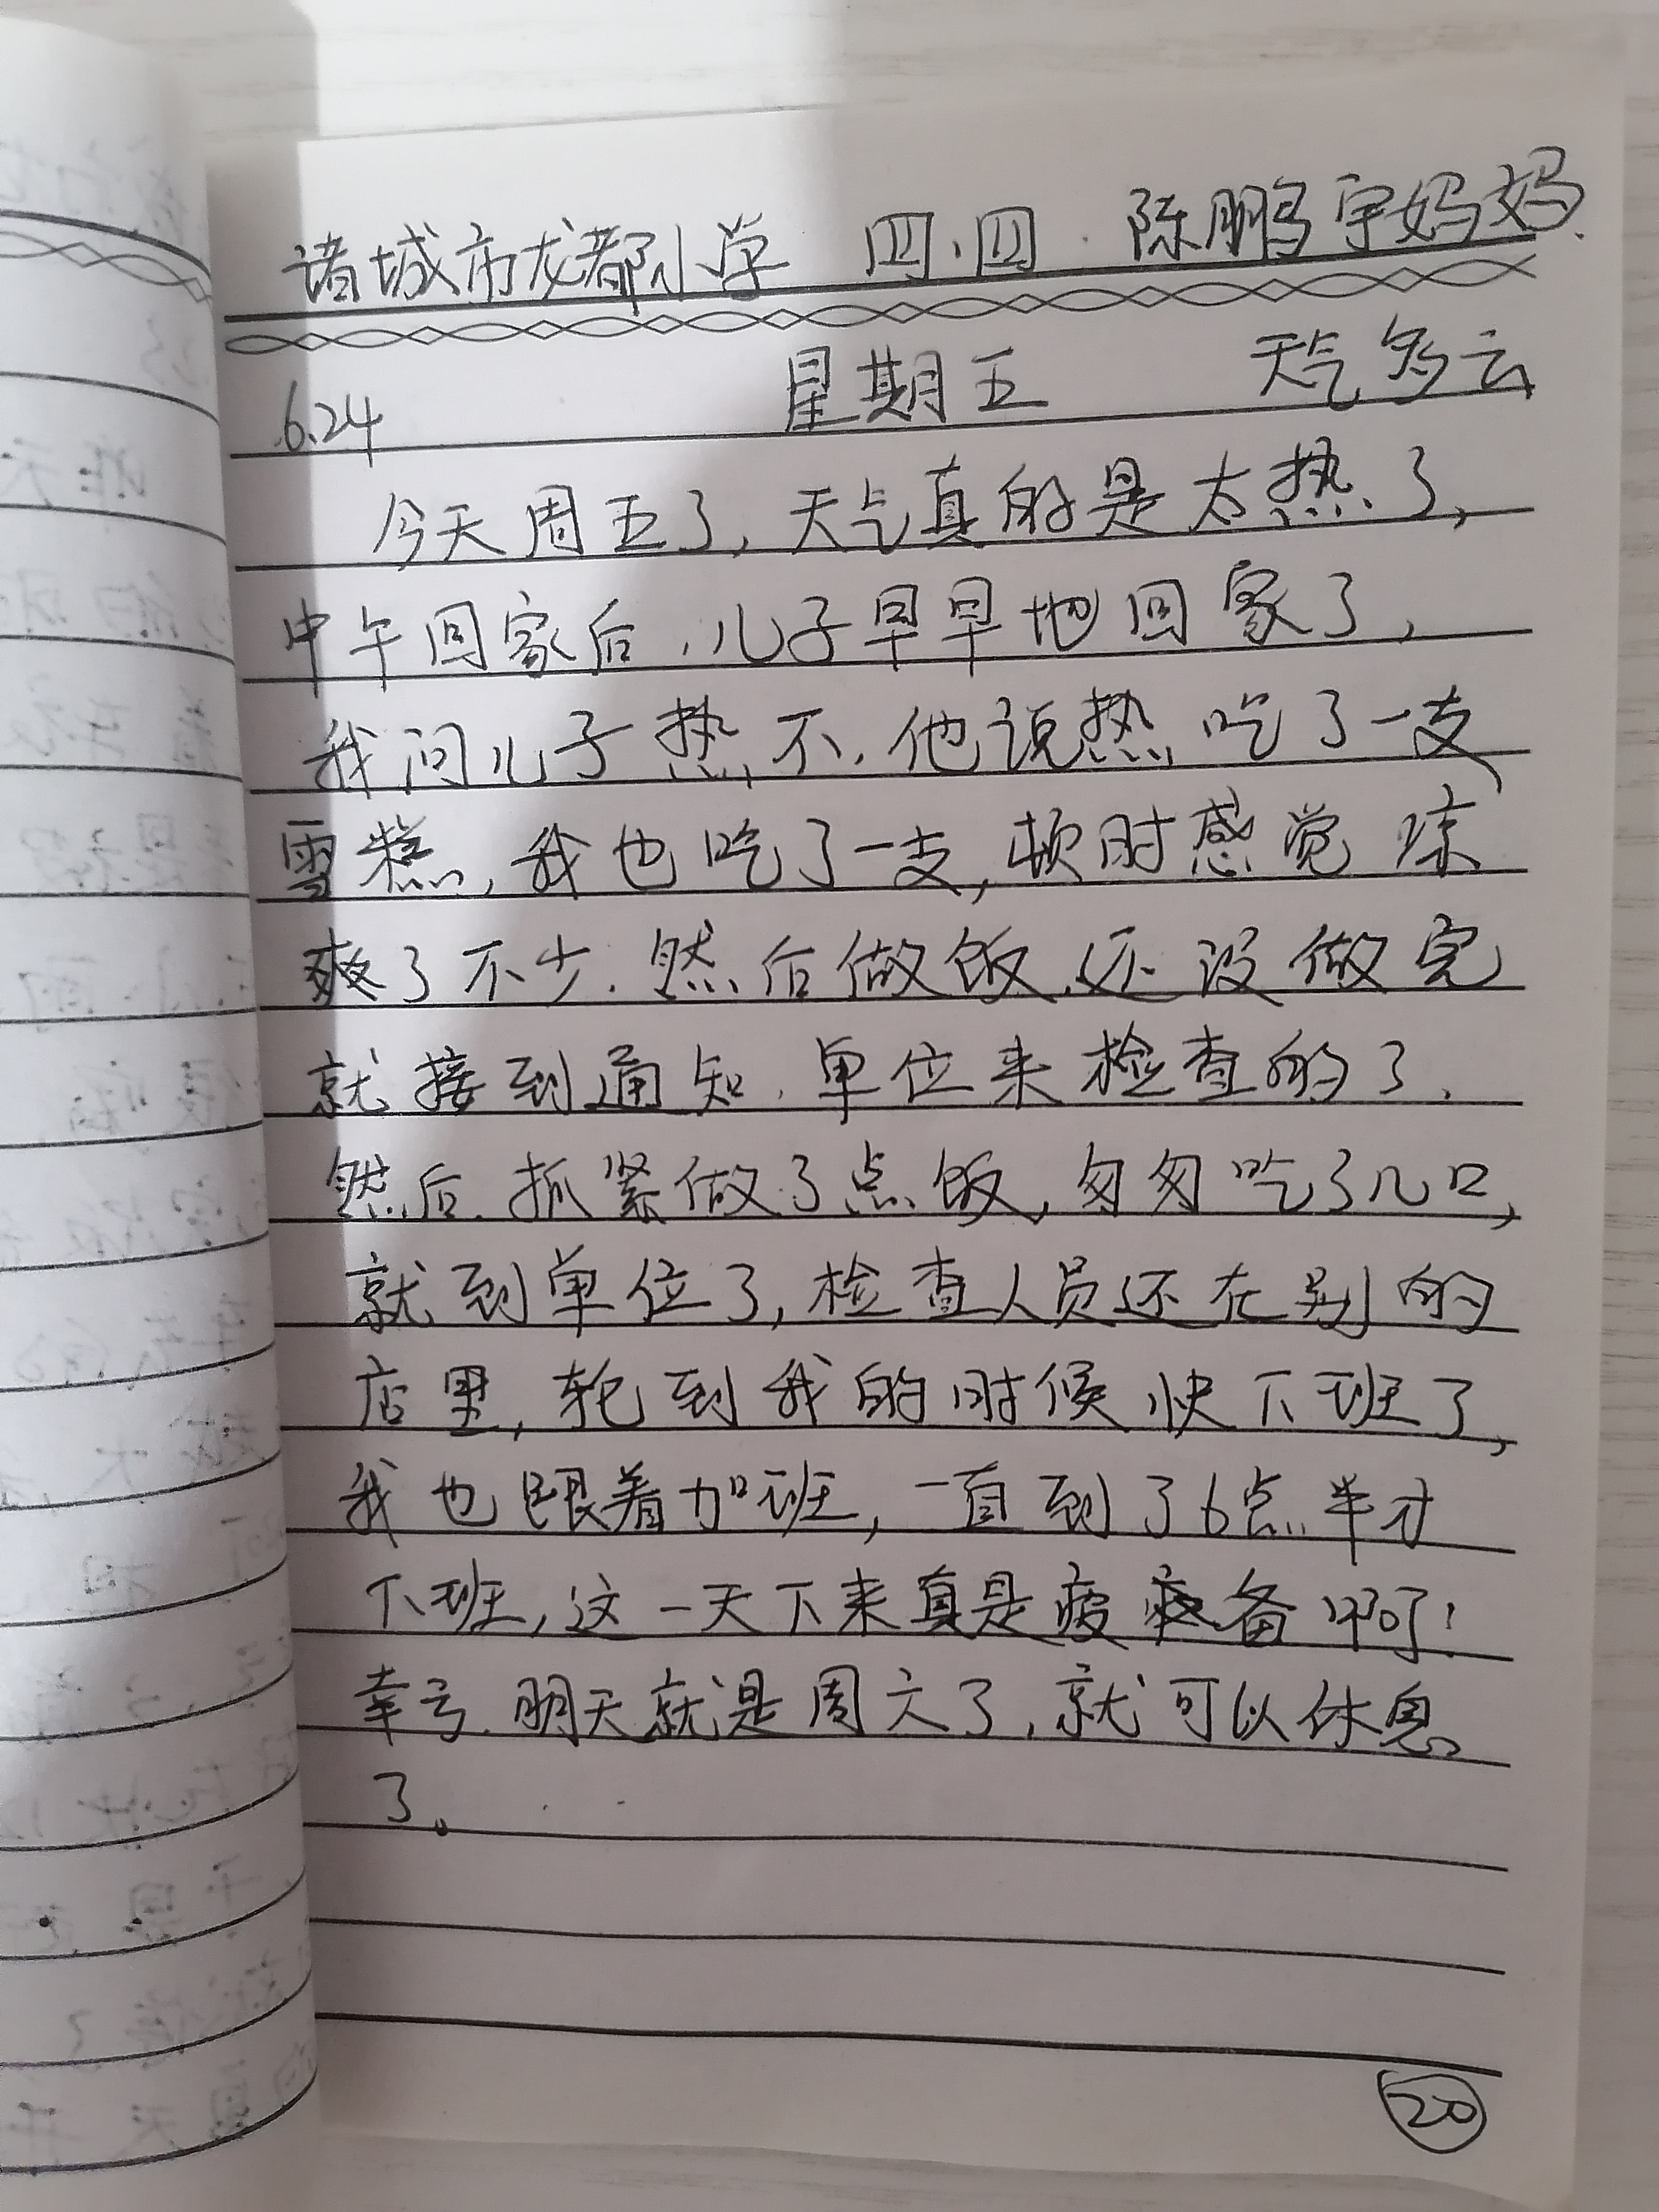 诸城市龙都小学 四.四. 陈鹏宇妈妈.
6.24 星期五 天气多云
今天周五了,天气真的是太热了,
中午回家后,儿子早早地回家了,
我问儿子热不,他说热,吃了一支
雪糕,我也吃了一支,顿时感觉凉
爽了不少.然后做饭,还没做完
就接到通知,单位来检查的了.
然后抓紧做了点饭,匆匆吃了几口,
就到单位了,检查人员还在别的
店里,轮到我的时候快下班了,
我也跟着加班,一直到了6点半才
下班,这一天下来真是疲惫啊!
幸亏,明天就是周六了,就可以休息
了。
20